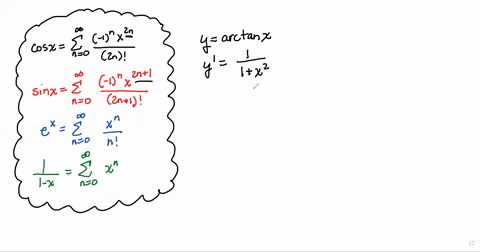 cosx = ∞∑n=0 (-1)^n x^2n / (2n)!
sinx = ∞∑n=0 (-1)^n x^2n+1 / (2n+1)!
e^x = ∞∑n=0 x^n / n!
1 / 1-x = ∞∑n=0 x^n
y = arctanx
y' = 1 / 1+x^2